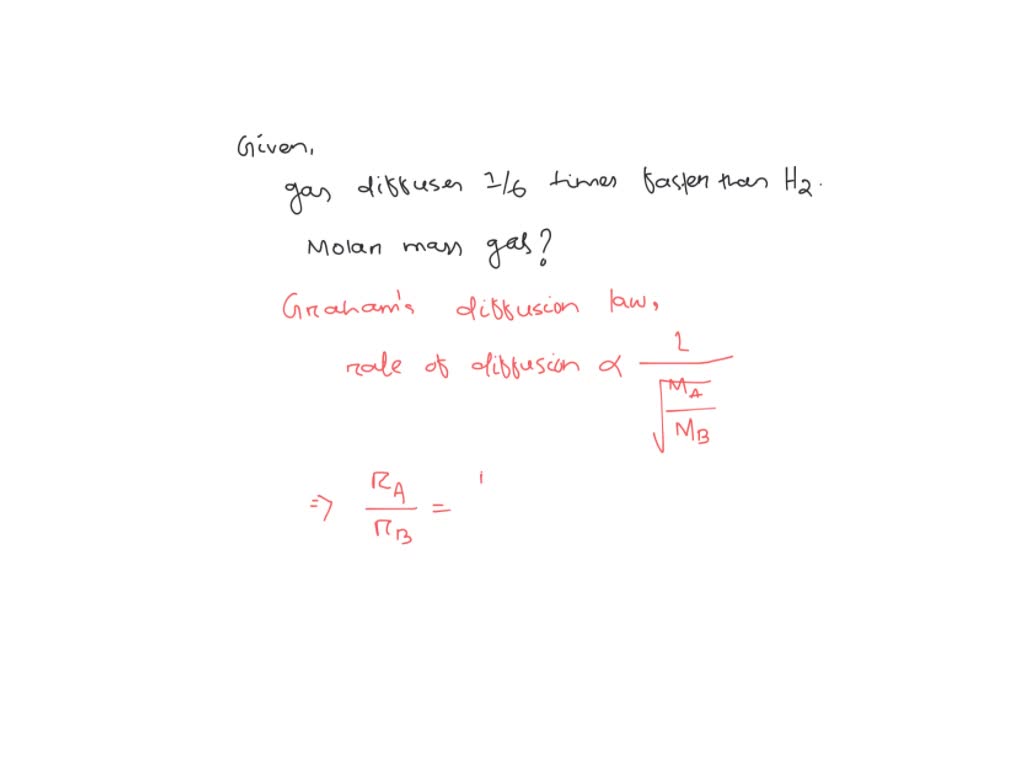 Given,
gas diffuses 1/6 times faster than H2.
Molar mass gas?
Graham's diffusion law,
rate of diffusion ∝ 1 / √(MA / MB)
⇒ RA / RB =